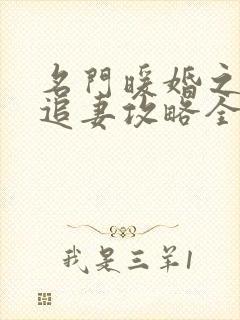 名門暖婚之
追妻攻略全
我是三羊1